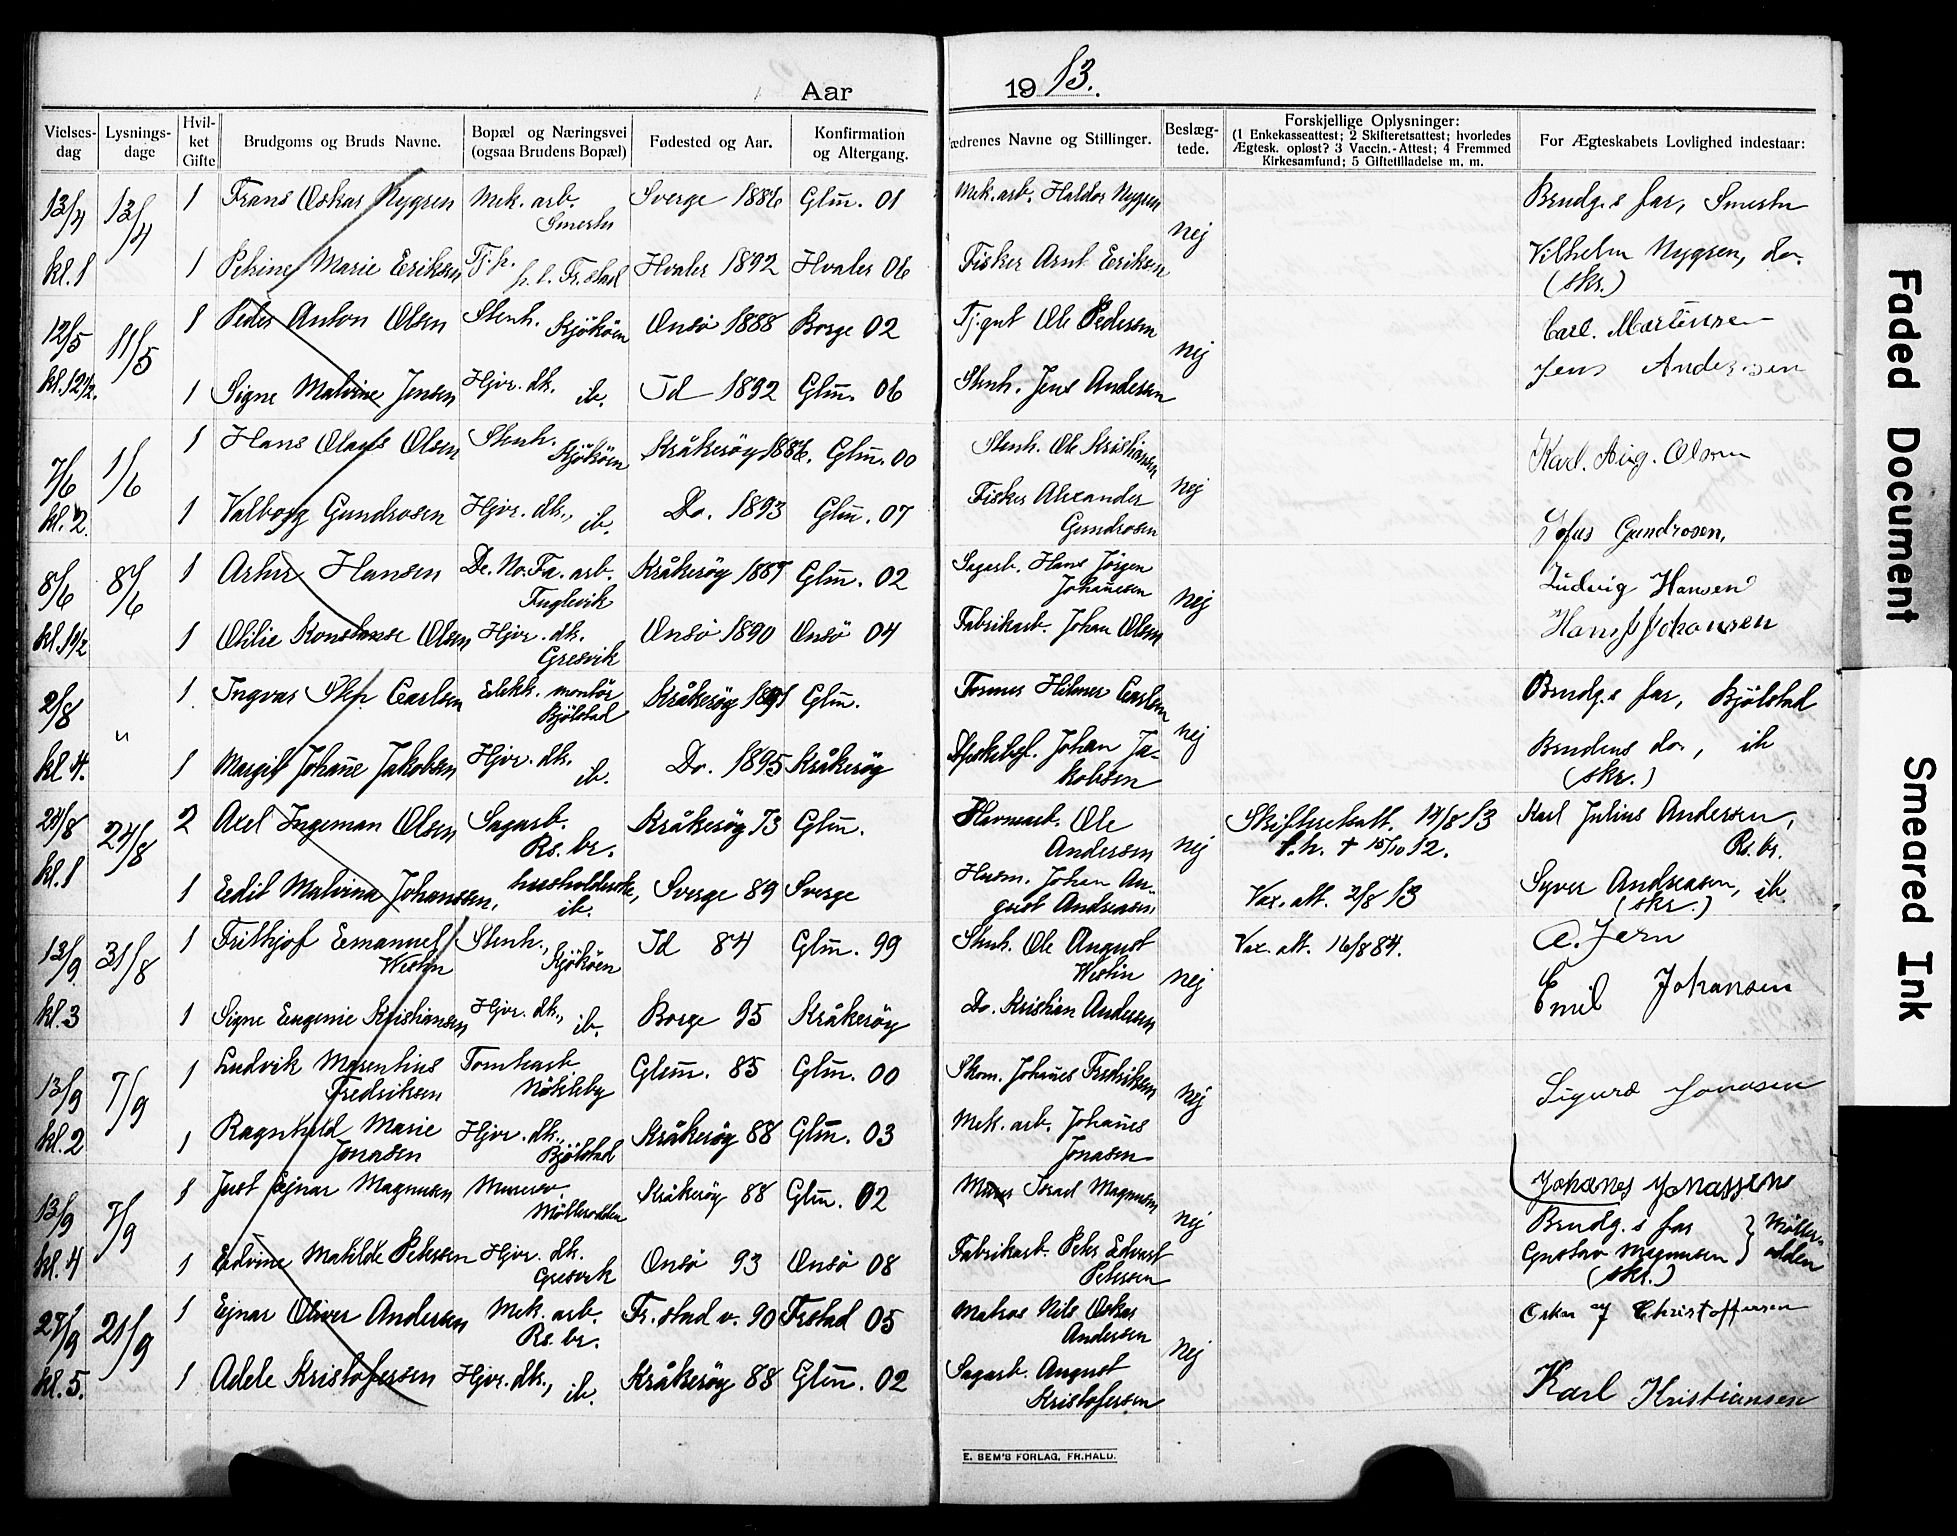 Aar 1913.
Vielses-dag Lysnings-dage Hvil-ket Gifte Brudgoms og Bruds Navne. Bopæl og Næringsvei (ogsaa Brudens Bopæl) Fødested og Aar. Konfirmation og Altergang. Fædrenes Navne og Stillinger. Beslæg-tede. Forskjellige Oplysninger: (1 Enkekasseattest; 2 Skifteretsattest; hvorledes Ægtesk. opløst? 3 Vaccin.-Attest; 4 Fremmed Kirkesamfund; 5 Giftetilladelse m. m. For Ægteskabets Lovlighed indestaar:
13/4 13/4 1 Frans Oskar Nygren Mek. arb. Smertu Sverge 1886 Glm̄. 01 Mek. arb. Haldor Nygren nej Brudg.s far, Smertu
kl. 1 1 Petrine Marie Eriksen Tj.p. p. t. Fr.stad Hvaler 1892 Hvaler 06 Fisker Arnt Eriksen Vilhelm Nygren, do. (skr.)
12/5 11/5 1 Peder Anton Olsen Stenh. Kjököen Onsö 1888 Borge 02 Tj.gut Ole Pedersen nej Carl. Martinsen
kl. 12 1/2. 1 Signe Malvine Jensen Hjvr. dk. ib. Id 1892 Glm̄. 06 Stenh. Jens Andersen Jens Andersen
7/6 1/6 1 Hans Olaus Olsen Stenh. Kjököen Kråkeröy 1886. Glm̄. 00 Stenh. Ole Kristiansen nej Karl. Aug. Olsen
kl. 2. 1 Valborg Gundrosen Hjvr. dk., ib. Do. 1893 Glm̄. 07 Fisker Alexander Gundrosen Sofus Gundrosen,
8/6 8/6 1 Artur Hansen De. No. Fa. arb. Fuglevik Kråkeröy 1887 Glm̄. 02 Sagarb. Hans Jörgen Johan̄esen nej Ludvig Hansen
kl. 1 1/2 1 Otilie Konstanse Olsen Hjvr. dk. Gresvik Onsö 1890 Onsö 04 Fabrikarb. Johan Olsen Hans J Johansen
2/8 " 1 Ingvar Step Carlsen Elekt. montör Bjölstad Kråkeröy 1891 Glm̄. Tormer Hilmer Carlsen nej Brudg.s far, Bjölstad
kl 4. 1 Margit Johan̄e Jakobsen Hjvr. dk. ib. Do. 1895 Kråkeröy Johan Ja-kobsen Brudens do., ib (skr.)
24/8 24/8 2 Axel Ingeman Olsen Sagarb. Rs. br. Kråkeröy 73 Glm̄. Havnearb. Ole Andersen nej Skifteretsatt. 14/8 13 f. h. + 15/10 12. Karl Julius Andersen, Rs. br.
kl. 1 1 Eedit Malvina Johansen, husholderske, ib. Sverge 89 Sverge Husm. Johan Au-gust Andreasen Vax. att. 2/8 13 Syver Andreasen, ib (skr.)
13/9. 31/8 1 Frithjof Eemanuel Westin Stenh., Kjököen Id 84 Glm̄. 99 Stenh. Ole August Westin nej Vax. att. 16/8 84. A. Jern
kl. 3 1 Signe Eugenie Kristiansen Hjvr. dk., ib. Borge 95 Kråkeröy Do. Kristian Andersen Emil Johansen
13/9 7/9 1 Ludvik Marentius Fredriksen Tomtearb. Nökleby Glem̄. 85 Glm̄. 00 Skom. Johan̄es Fredriksen nej Sigurd Jonasen
kl. 2 1 Ragnhild Marie Jonasen Hjvr. dk., Bjölstad Kråkeröy 88 Glm̄. 03 Mek. arb. Johan̄es Jonasen Johanes Jonassen
13/9 7/9 1 Just Ejnar Magnusen Murer Möllerodden Kråkeröy 88 Glm̄. 02 Murer Israel Magnusen nej Brudg.s far } Möller-odden
kl. 4 1 Edvine Matilde Petersen Hjvr. dk. Gresvik Onsö 93 Onsö 08 Fabrikarb. Peter Edvart Petersen Gustav Magnusen (skr.)
27/9 21/9 1 Ejnar Oliver Andersen Mek. arb. Rs. br. Fr.stad v. 90 Frstad 05 Matros Nils Oskar Andersen nej Oskar J Christoffersen
kl. 5. 1 Adele Kristofersen Hjvr. dk., ib. Kråkeröy 88 Glm̄. 02 Sagarb. August Kristofersen Karl Kristiansen
E. SEM'S FORLAG, FR.HALD.
Faded Document
Smeared Ink